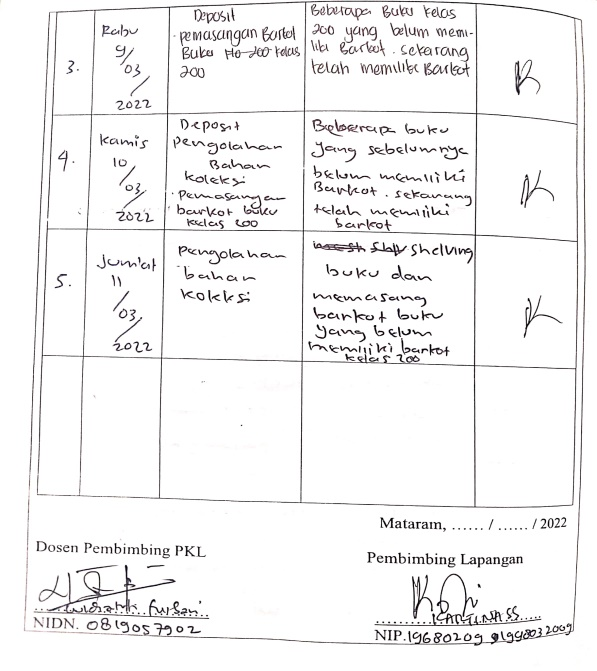 3.
Rabu
9/
/03
/
2022
Deposit
- pemasangan Barkot
Buku Ho 200 kelas
200
Beberapa Buku kelas
200 yang belum memi-
liki Barkot. sekarang
telah memiliki Barkot
4.
Kamis
10
/03
/
2022
Deposit
pengolahan
Bahan
koleksi
- pemasangan
barkot buku
kelas 200
Beberapa buku
yang sebelumnye
belum memiliki
Barkot. sekarang
telah memiliki
barkot
5.
Jum'at
11
/03
/
2022
pengolahan
bahan
koleksi
shelving
buku dan
memasang
barkot buku
yang belum
memiliki barkot
kelas 200
Mataram, ...... / ...... / 2022
Dosen Pembimbing PKL
Pembimbing Lapangan
NIDN. 0819057902
KARTINA SS
NIP. 19680209